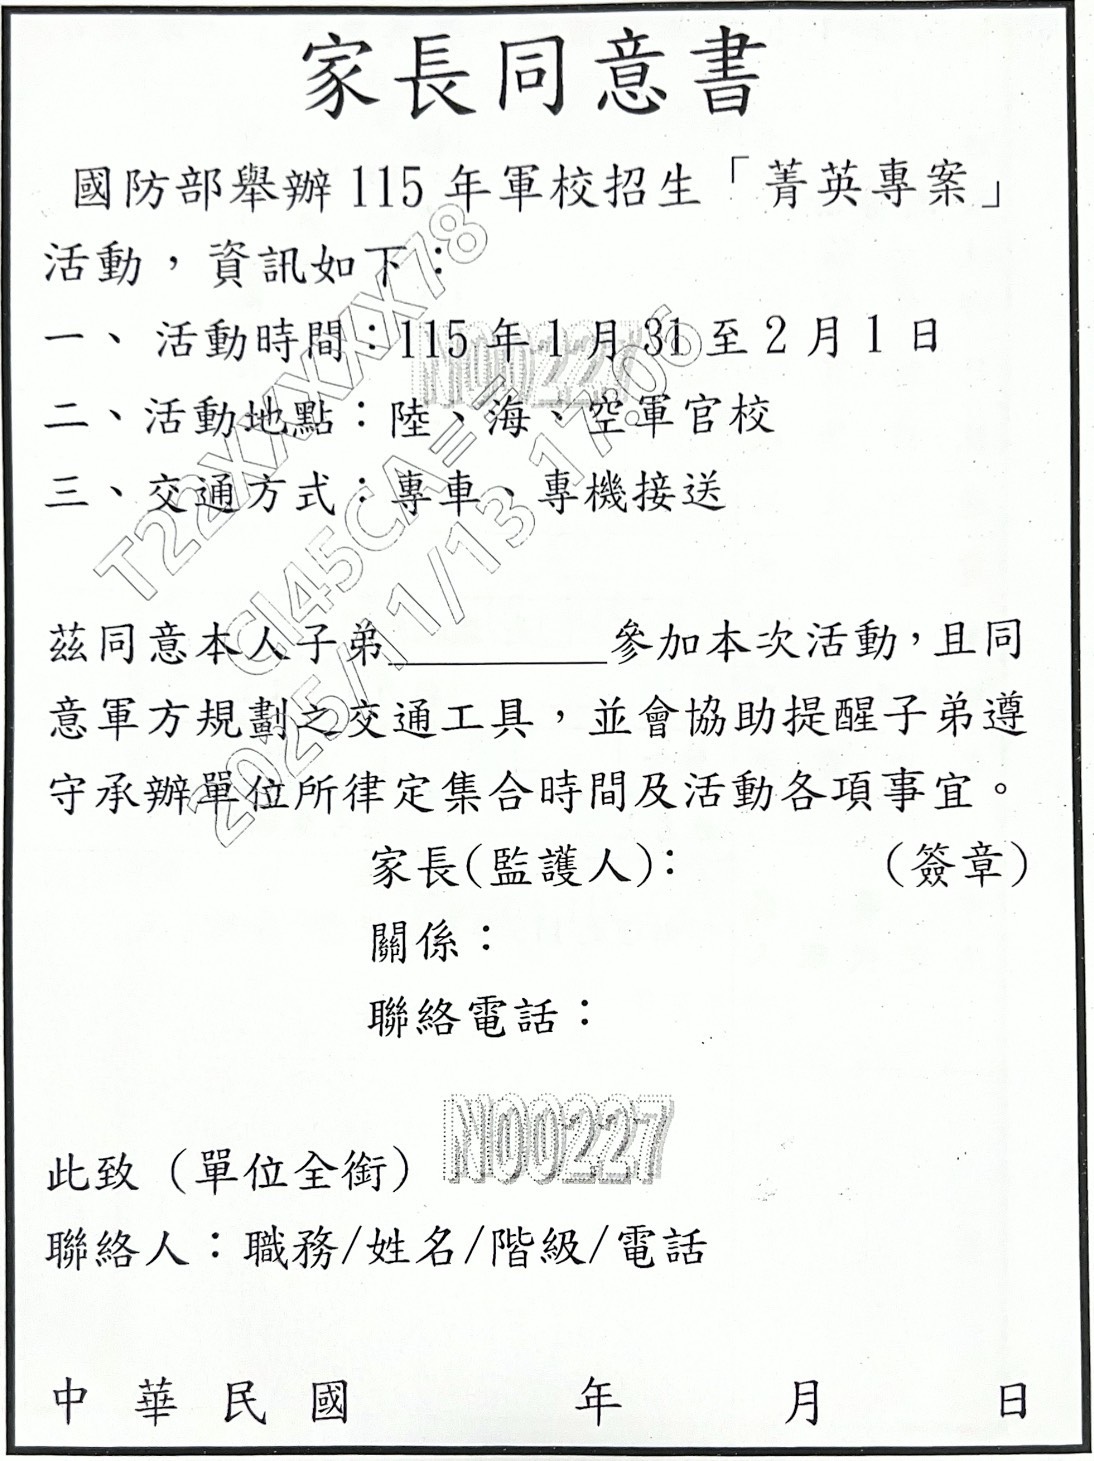 家長同意書
國防部舉辦115年軍校招生「菁英專案」
活動，資訊如下：
一、活動時間：115年1月31至2月1日
二、活動地點：陸、海、空軍官校
三、交通方式：專車、專機接送
茲同意本人子弟__________參加本次活動，且同
意軍方規劃之交通工具，並會協助提醒子弟遵
守承辦單位所律定集合時間及活動各項事宜。
家長(監護人)： （簽章）
關係：
聯絡電話：
此致（單位全銜）
聯絡人：職務/姓名/階級/電話
中華民國 年 月 日
T22XXXXX78
CI45CA==
2025/11/13 17:06
N00227
N00227